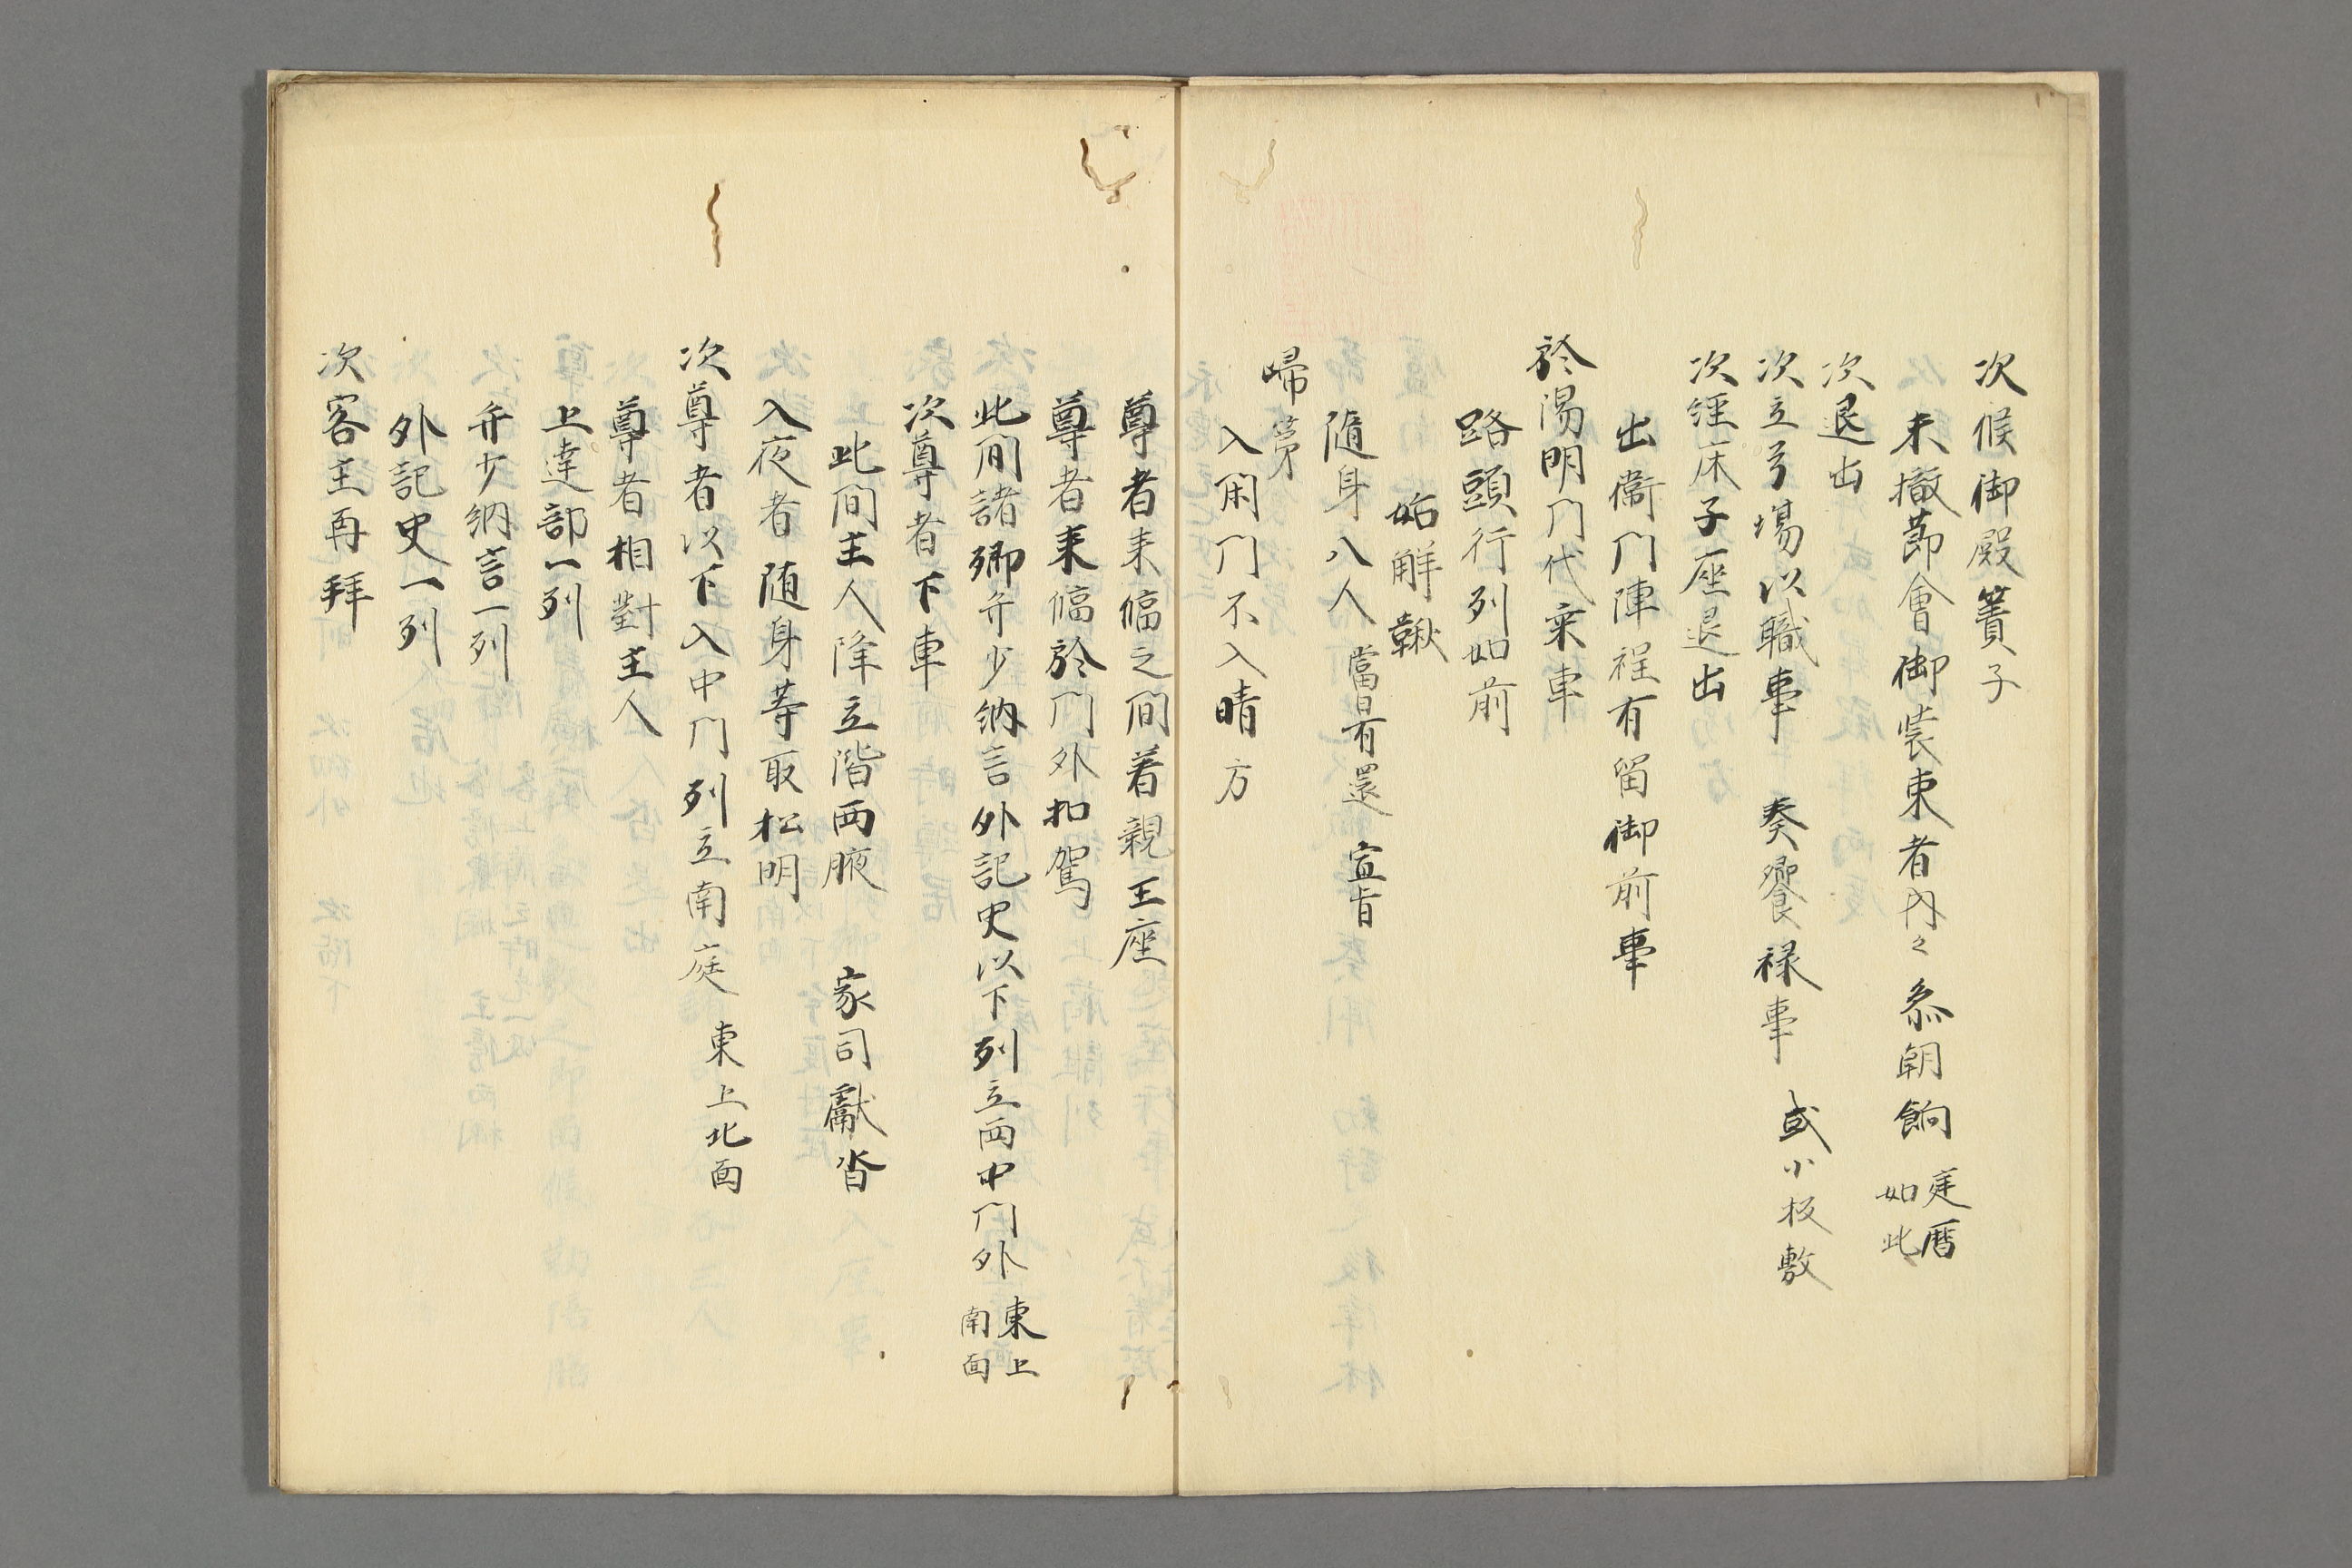 次候御殿簀子
未撤節會御裝束者内々叅朝餉 延暦如此
次退出
次立弓場以職事 奏饗禄事 或小板敷
次経床子座退出
出衛門陣程有留御前事
於陽明門代乗車
路頭行列如前
始解鞦
随身八人 當日有還 宣旨
帰第
入閑門不入晴方
尊者来偪之間着親王座
尊者来偪於門外扣駕
此間諸卿弁少納言外記史以下列立西中門外 東上南面
次尊者下車
此間主人降立階西腋 家司獻沓
入夜者随身等取松明
次尊者以下入中門列立南庭 東上北面
尊者相對主人
上達部一列
弁少納言一列
外記史一列
次客主再拝